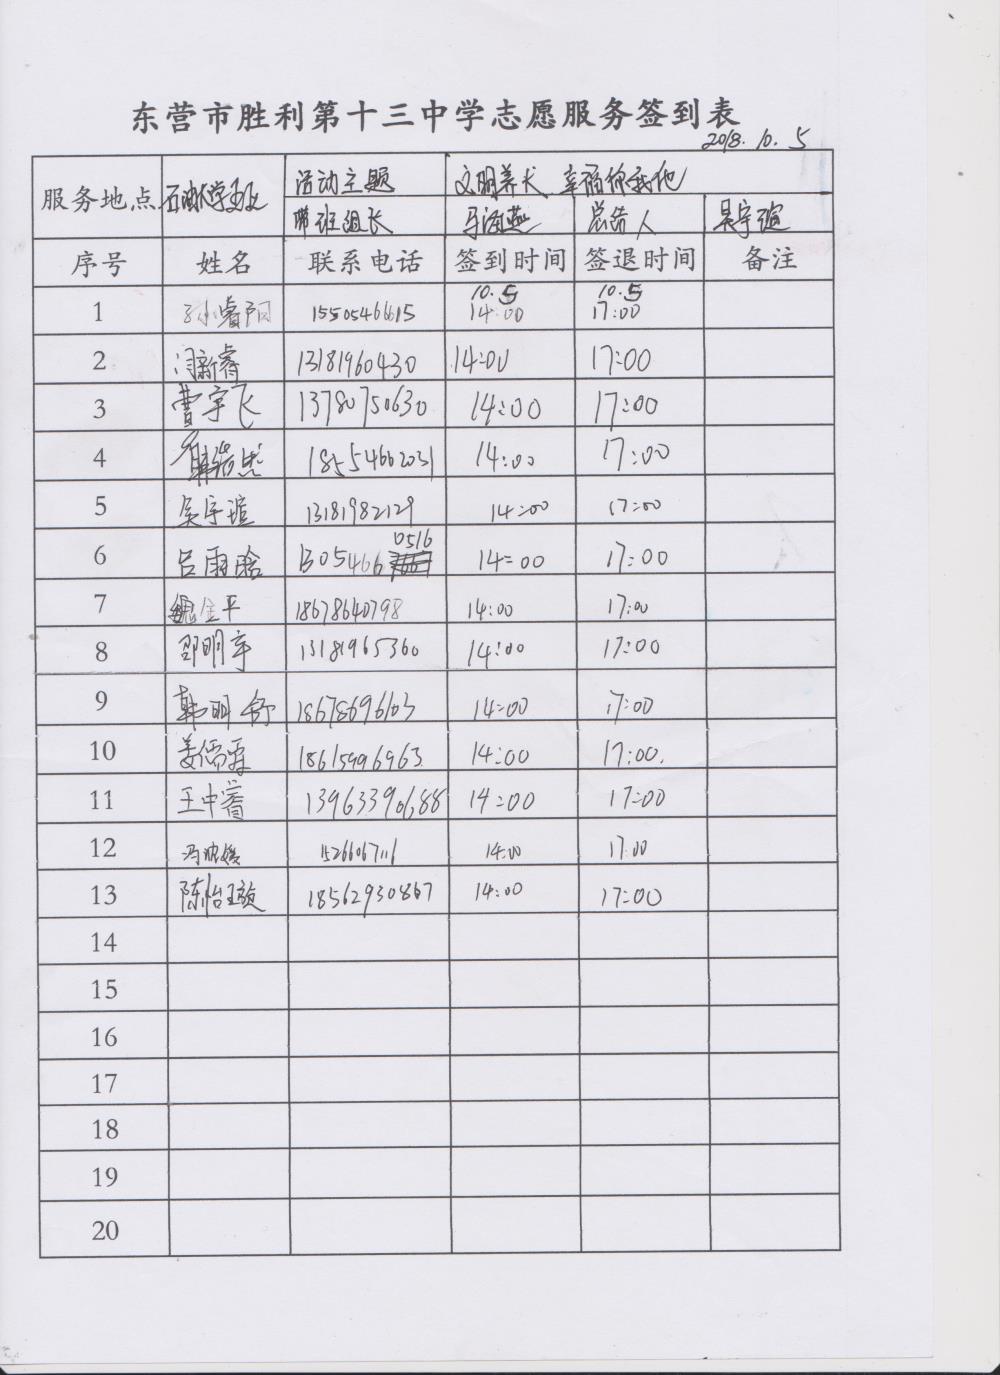 东营市胜利第十三中学志愿服务签到表
2018.10.5
服务地点 石油大学 活动主题 文明养犬 幸福你我他
带班组长 马海燕 总负责人 吴宇瑄
序号 姓名 联系电话 签到时间 签退时间 备注
1 孙睿阳 15505466615 10.5 14:00 10.5 17:00
2 闫新睿 13181960430 14:00 17:00
3 曹宇飞 13780750630 14:00 17:00
4 18554662031 14:00 17:00
5 吴宇瑄 13181982129 14:00 17:00
6 吕雨晗 1305466 0516 14:00 17:00
7 魏金平 18678640798 14:00 17:00
8 邵明宇 13181965360 14:00 17:00
9 韩明舒 18678696103 14:00 17:00
10 姜儒霖 18615996963 14:00 17:00.
11 王中睿 14:00 17:00
12 15266067116 14:00 17:00
13 陈怡璇 18562930867 14:00 17:00
14
15
16
17
18
19
20